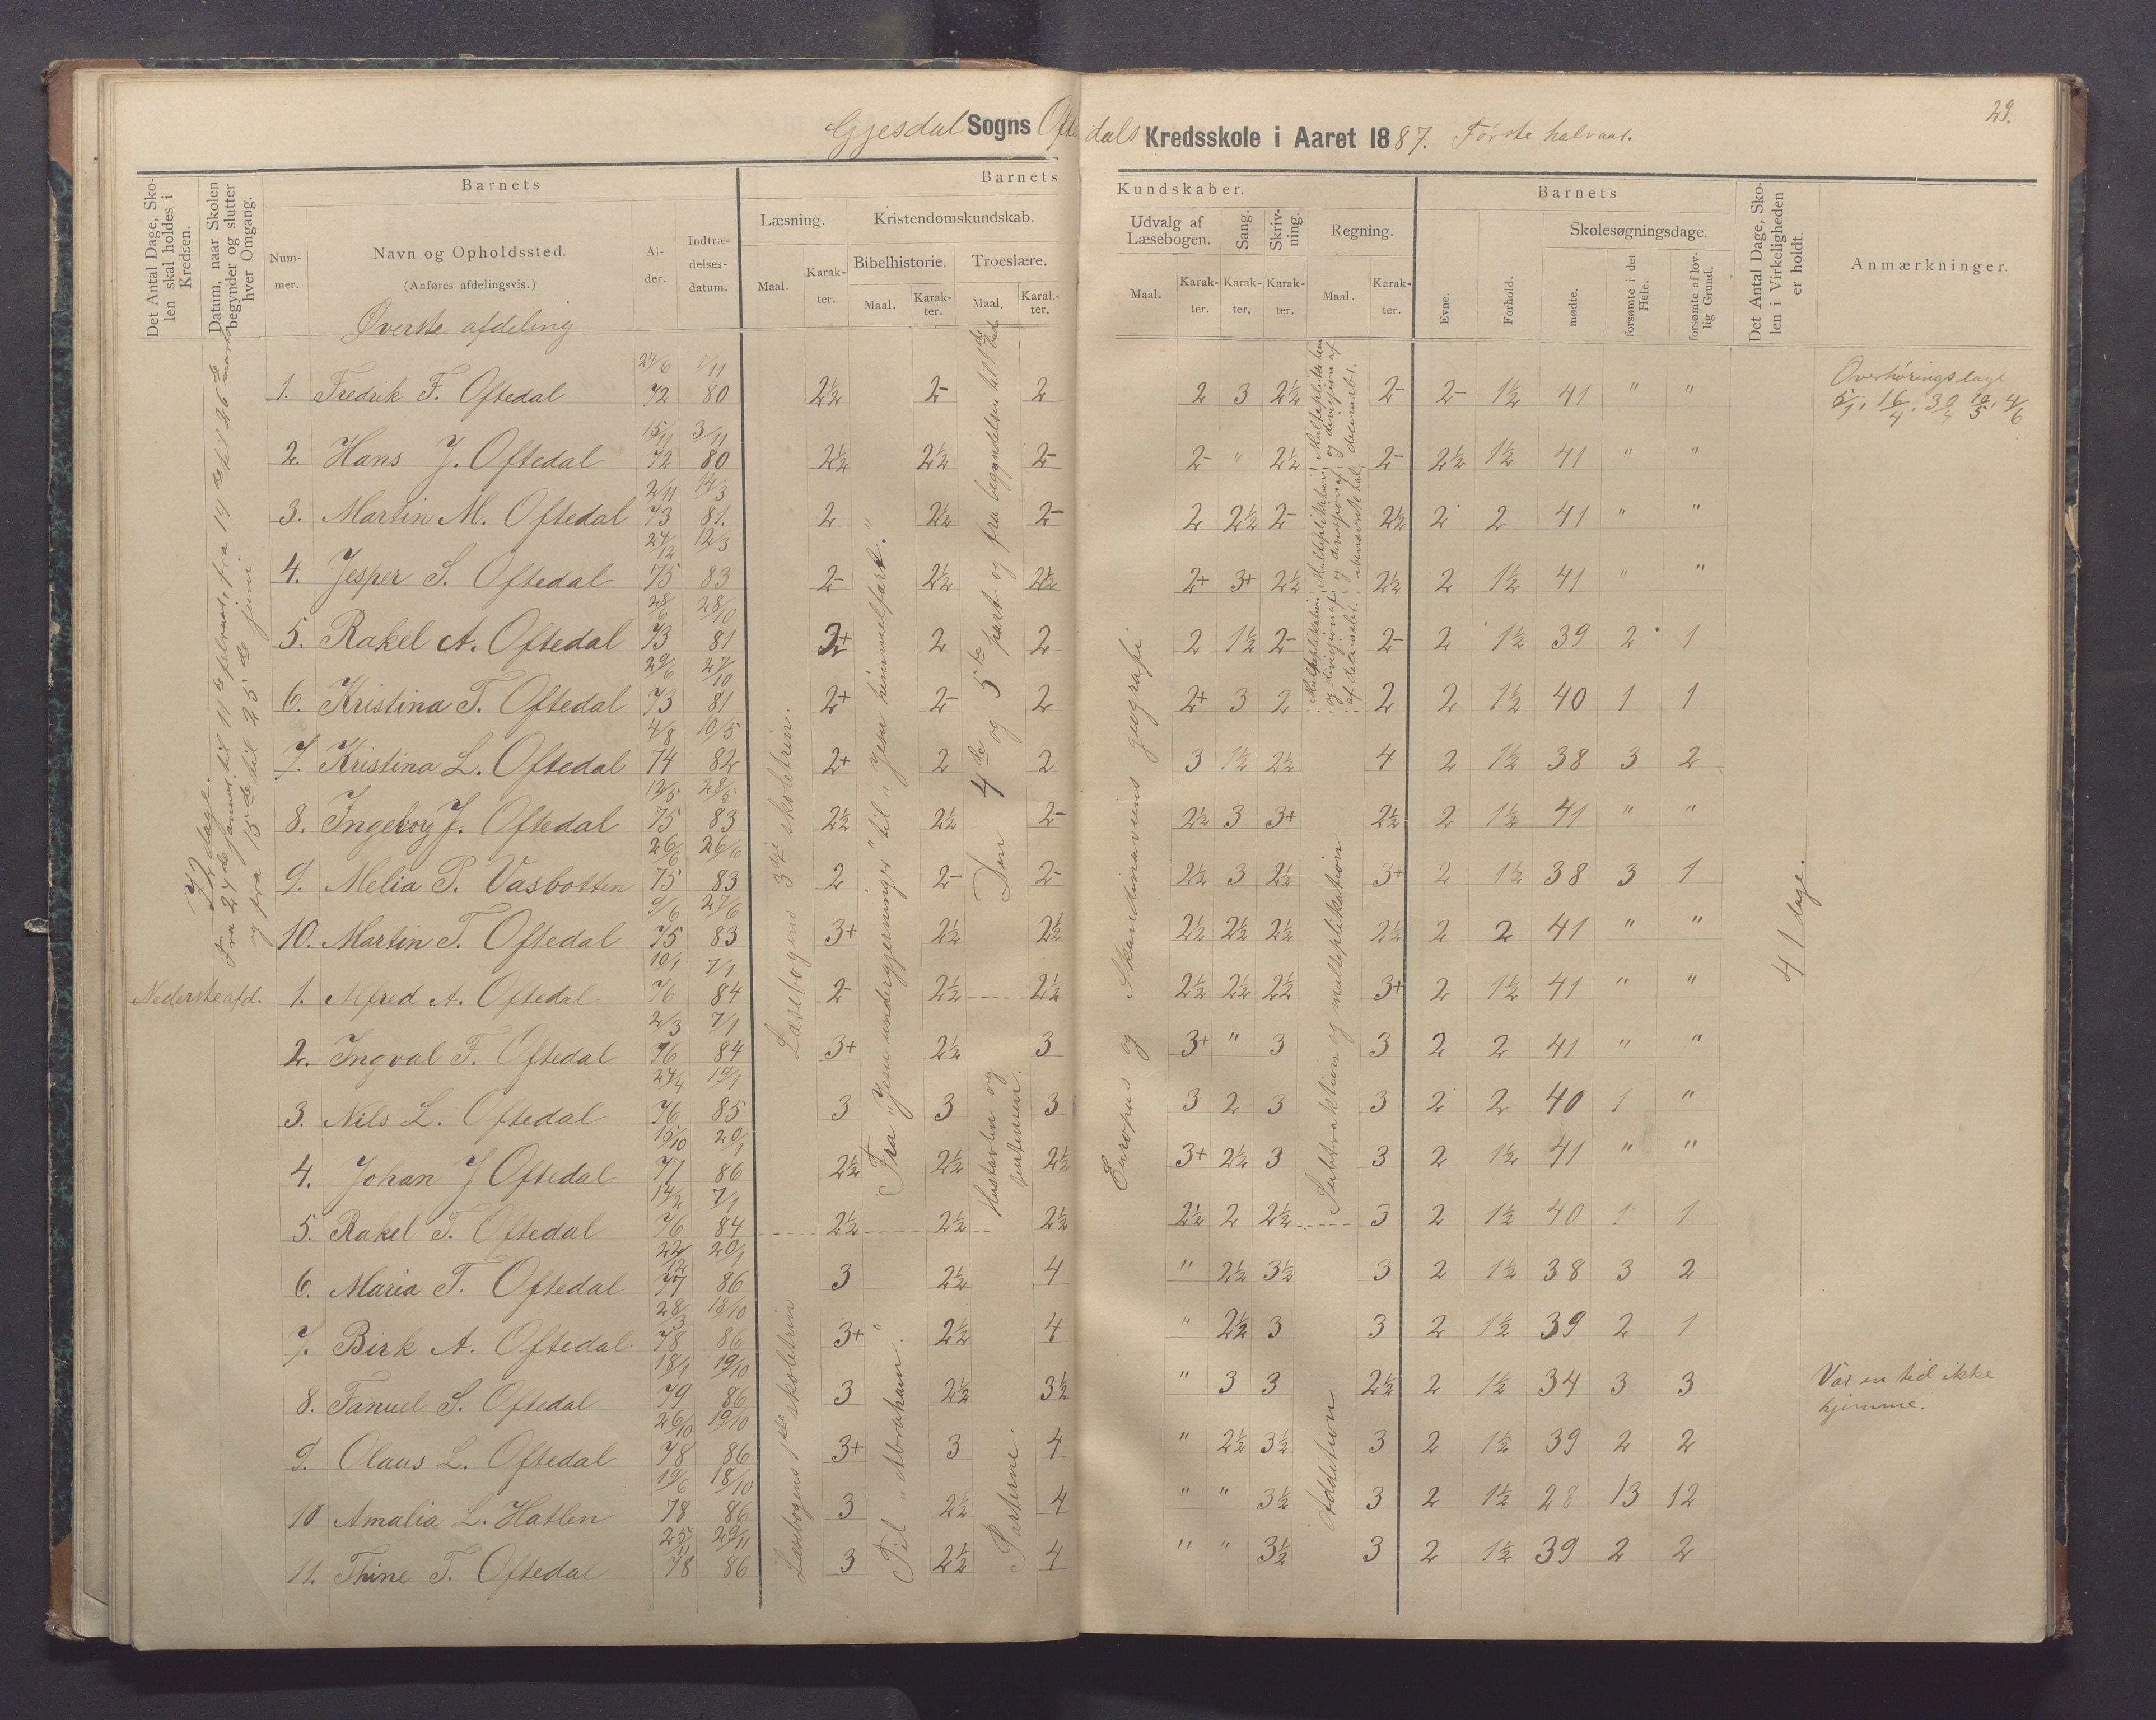 29.
Gjesdal Sogns Oftedals Kredsskole i Aaret 1887. Første halvaar.
Det Antal Dage, Skolen skal holdes i Kredsen.
Datum, naar Skolen begynder og slutter hver Omgang.
Barnets
Nummer.
Navn og Opholdssted.
(Anføres afdelingsvis.)
Alder.
Indtrædelsesdatum.
Barnets Kundskaber.
Læsning. Maal. Karakter.
Kristendomskundskab.
Bibelhistorie. Maal. Karakter.
Troeslære. Maal. Karakter.
Udvalg af Læsebogen. Maal. Karakter.
Sang. Karakter.
Skrivning. Karakter.
Regning. Maal. Karakter.
Barnets
Evne. Forhold.
Skolesøgningsdage.
mødte. forsømte i det Hele. forsømte af lovlig Grund.
Det Antal Dage, Skolen i Virkeligheden er holdt.
Anmærkninger.
Øverste afdeling
1. Fredrik F. Oftedal 24/6 72 1/11 80 2½ 2- 2 2 3 2½ 2- 2- 1½ 41 " "
2. Hans J. Oftedal 15/11 72 3/11 80 2½ 2½ 2- 2- " 2½ 2- 2½ 1½ 41 " "
3. Martin M. Oftedal 2/11 73 14/3 81. 2 2½ 2- 2 2½ 2- 2½ 2 2 41 " "
4. Jesper S. Oftedal 24/12 75 12/3 83 2- 2½ 2½ 2+ 3+ 2½ 2½ 2 1½ 41 " "
5. Rakel A. Oftedal 28/6 73 28/10 81 2+ 2 2 2 1½ 2- 2- 2 1½ 39 2 1
6. Kristina T. Oftedal 29/6 73 27/10 81 2+ 2- 2 2+ 3 2 2 2 1½ 40 1 1
7. Kristina L. Oftedal 4/8 74 10/5 82 2+ 2 2 3 1½ 2½ 4 2 1½ 38 3 2
8. Ingeborg J. Oftedal 12/5 75 28/5 83 2½ 2½ 2- 2½ 3 3+ 2½ 2 1½ 41 " "
9. Melia P. Vasbotten 26/6 75 26/6 83 2 2- 2- 2½ 3 2½ 3+ 2 1½ 38 3 1
10. Martin T. Oftedal 9/6 75 27/6 83 3+ 2½ 2½ 2½ 2½ 2½ 2½ 2 2 41 " "
Nederste afd.
1. Alfred A. Oftedal 10/1 76 7/1 84 2- 2½ 2½ 2½ 2½ 2½ 3+ 2 1½ 41 " "
2. Ingval F. Oftedal 2/3 76 7/1 84 3+ 2½ 3 3+ " 3 3 2 2 41 " "
3. Nils L. Oftedal 24/4 76 19/1 85 3 3 3 3 2 3 3 2 2 40 1 "
4. Johan J Oftedal 15/10 77 20/1 86 2½ 2½ 2½ 3+ 2½ 3 3 2 1½ 41 " "
5. Rakel T. Oftedal 14/2 76 7/1 84 2½ 2½ 2½ 2½ 2 2½ 3 2 1½ 40 1 1
6. Maria T. Oftedal 22/12 77 20/1 86 3 2½ 4 " 2½ 3½ 3 2 1½ 38 3 2
7. Birk A. Oftedal 28/3 78 18/10 86 3+ 2½ 4 " 2½ 3 3 2 1½ 39 2 1
8. Fanuel S. Oftedal 18/1 79 19/10 86 3 2½ 3½ " 3 3 2½ 2 1½ 34 3 3
9. Olaus L. Oftedal 26/10 78 19/10 86 3+ 3 4 " 2½ 3½ 3 2 1½ 39 2 2
10 Amalia L. Hatlen 19/6 78 18/10 86 3 2½ 4 " " 3½ 3 2 1½ 28 13 12
11. Thine T. Oftedal 25/11 78 29/11 86 3 2½ 4 " " 3½ 3 2 1½ 39 2 2
dage.
Fra 24de januar til 11te februar, fra 14de til 26de marts
og fra 15de til 25de juni
Læsebogens 3die skoletrin.
Læsebogens 1ste skoletrin
Fra "Jesu undergjerninger" til "Jesu himmelfart."
Til "Abraham".
Den 4de og 5te part og fra begyndelsen til 1ste bud.
Hustavlen og
Parterne.
Europas og Skandinaviens geografi
Multiplikation og division af decimalbr.
Subtraktion og multiplikation
Addition
41 dage.
Overhøringsdage
5/1, 16/4, 30/4, 10/5, 4/6
Var en tid ikke
hjemme.